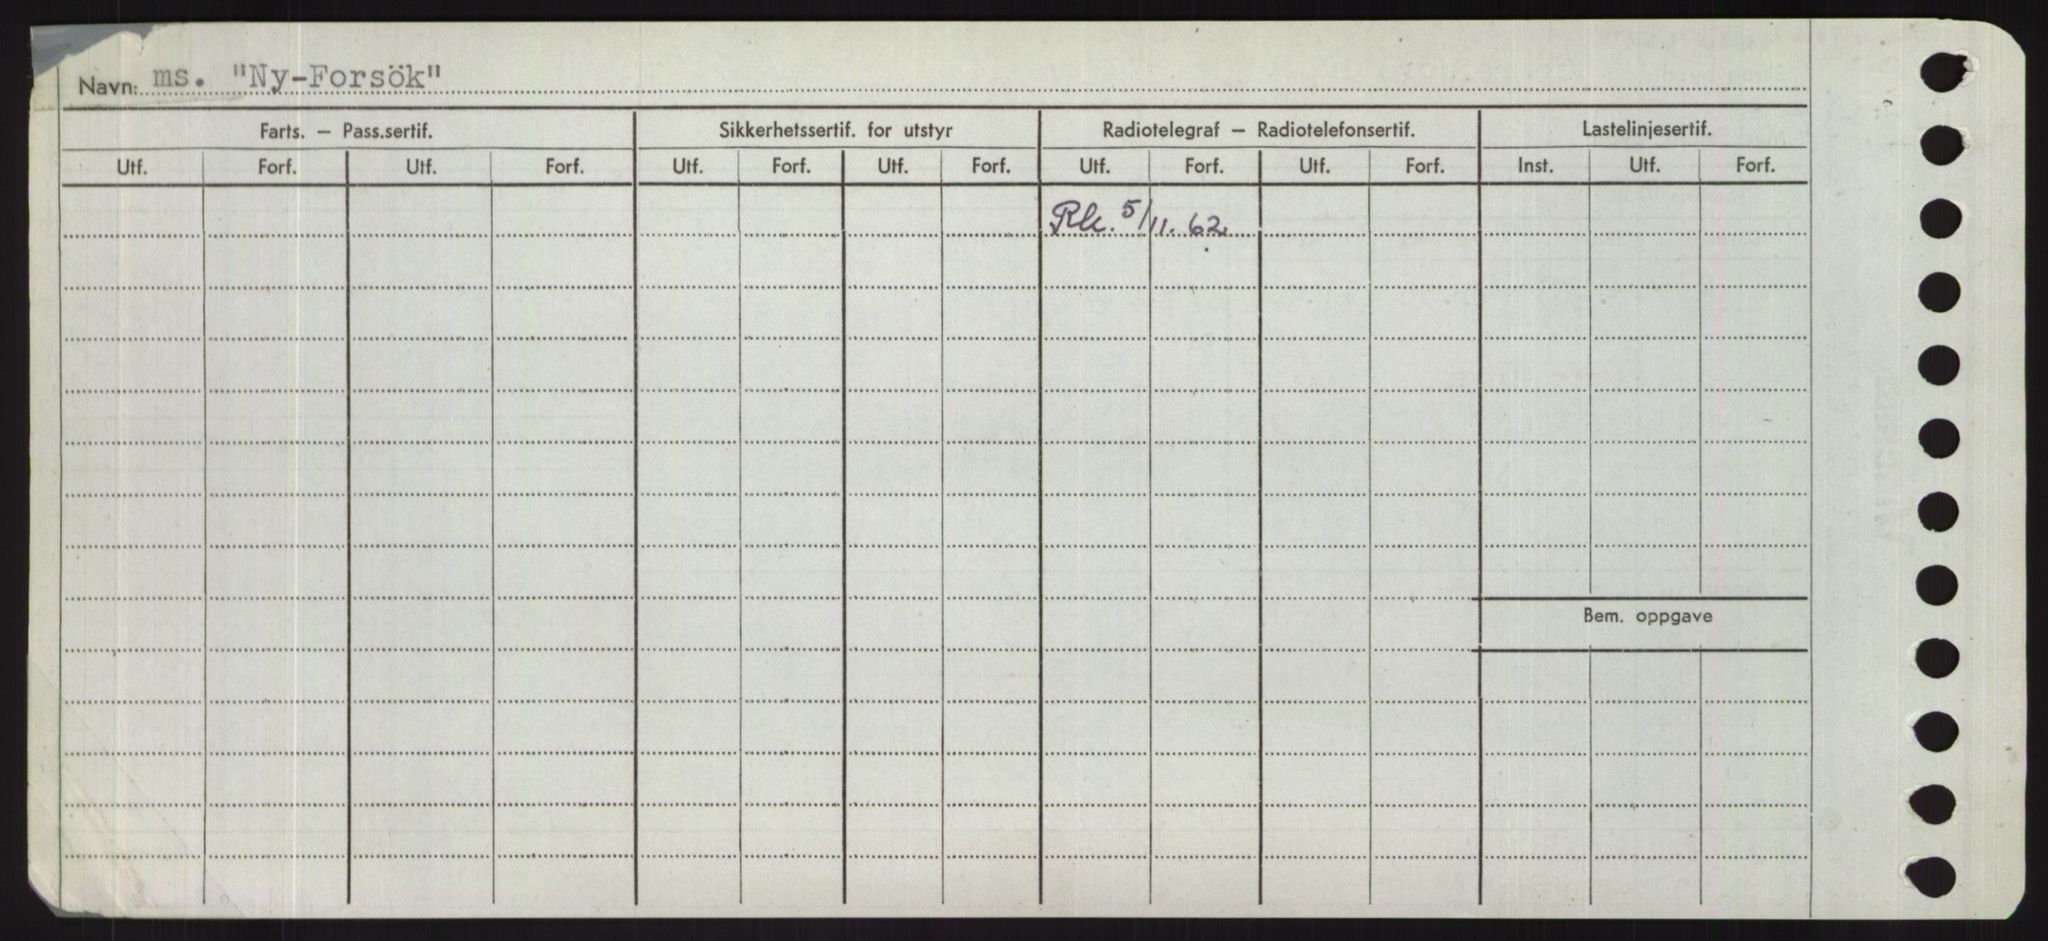 Navn: ms. "Ny-Forsök"
Farts. — Pass.sertif. Sikkerhetssertif. for utstyr Radiotelegraf — Radiotelefonsertif. Lastelinjesertif.
Utf. Forf. Utf. Forf. Utf. Forf. Utf. Forf. Utf. Forf. Utf. Forf. Inst. Utf. Forf.
Rk. 5/11. 62
Bem. oppgave